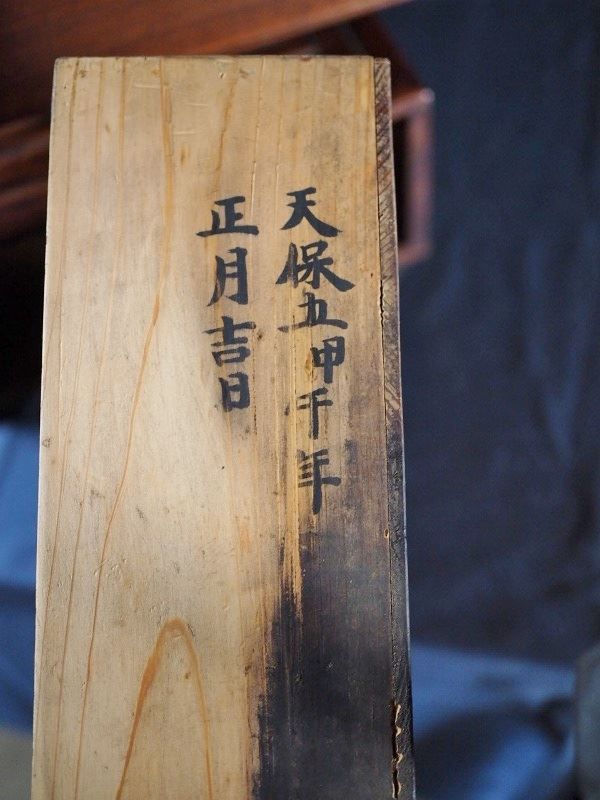 天保五甲午年
正月吉日